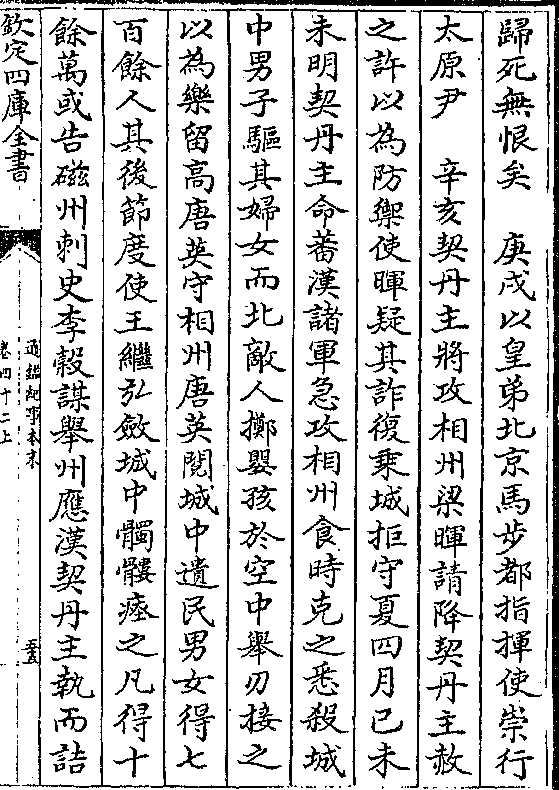 歸死無恨矣　庚戌以皇弟北京馬步都指揮使崇行
太原尹　辛亥契丹主將攻相州梁暉請降契丹主赦
之許以為防禦使暉疑其詐復乗城拒守夏四月已未
未明契丹主命蕃漢諸軍急攻相州食時克之悉殺城
中男子驅其婦女而北敵人擲嬰孩於空中舉刃接之
以為樂留高唐英守相州唐英閲城中遺民男女得七
百餘人其後節度使王繼弘斂城中髑髏瘞之凡得十
餘萬或告磁州刺史李榖謀舉州應漢契丹主執而詰
欽定四庫全書
通鑑紀事本末
卷四十二上
五五